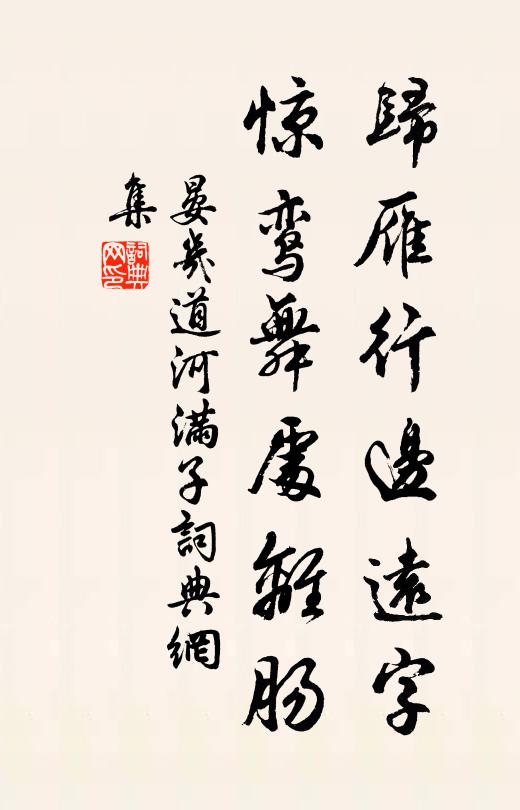 歸雁行邊遠字
惊鸾舞處離肠
晏幾道河滿子詞典網
集
詞典網印